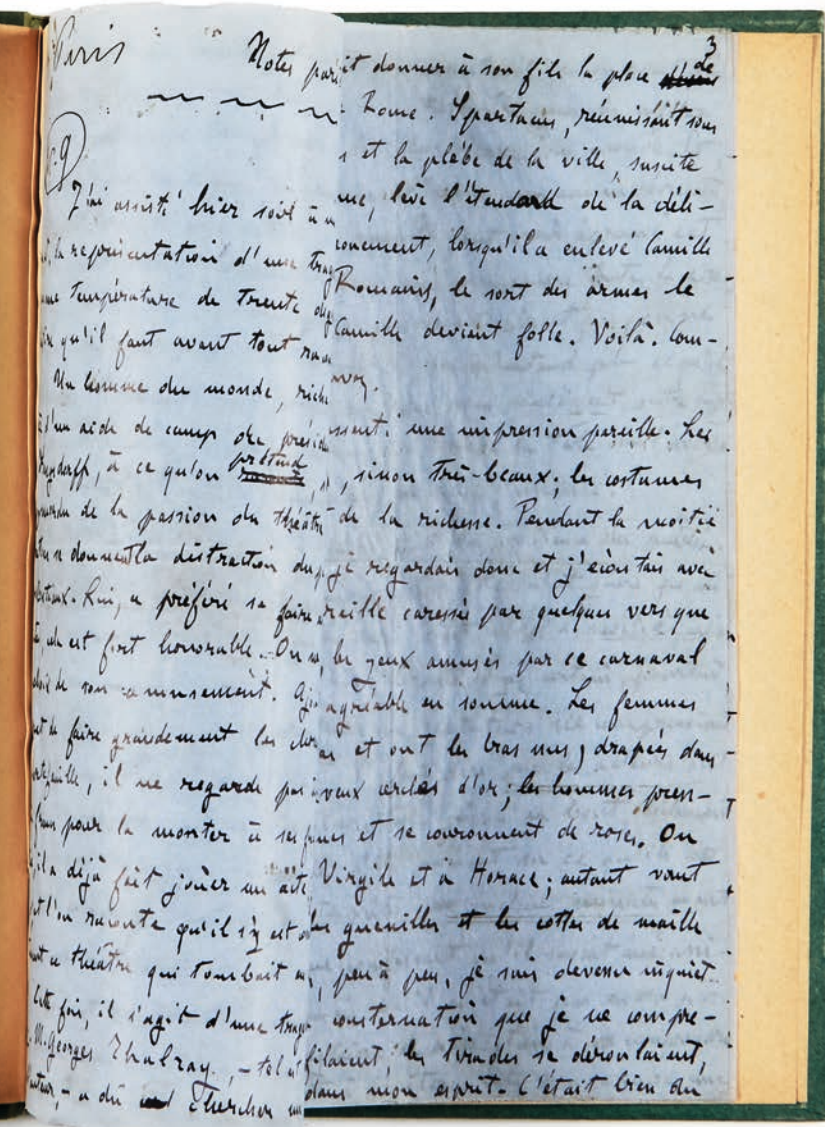 Paris
Notes pari
9
J'ai assisté hier soir à u
la représentation d'une trag
une température de trente deg
qu'il faut avant tout
Un homme du monde, riche
d'un aide de camp du présid
à ce qu'on prétend
de la passion du théâtre
se donnent la distraction du
Lui, a préféré se faire
est fort honorable. On
de son amusement. Ajou
faire grandement les cho
il ne regarde pas
pour la monter à ses
il a déjà fait jouer un acte
l'on raconte qu'il s'y est
ce théâtre qui tombait
Cette fois, il s'agit d'une trag
M. Georges Thalray, – tel
– a dû chercher un
3
it donner à son fils la place de
Rome. Spartacus, réunissant sous
et la plèbe de la ville, suscite
me, lève l'étendard de la déli-
lorsqu'il a enlevé Camille
Romains, le sort des armes le
Camille devient folle. Voilà. Com-
senti une impression pareille. Les
, sinon très-beaux; les costumes
de la richesse. Pendant la moitié
je regardais donc et j'écoutais avec
reille caressée par quelques vers que
les yeux amusés par ce carnaval
agréable en somme. Les femmes
et ont les bras nus, drapées dans
veux cerclés d'or; les hommes pren-
et se couronnent de roses. On
Virgile et à Horace; autant vaut
guenilles et les cottes de maille
peu à peu, je suis devenu inquiet.
consternation que je ne compre-
filaient, les tirades se déroulaient,
dans mon esprit. C'était bien du